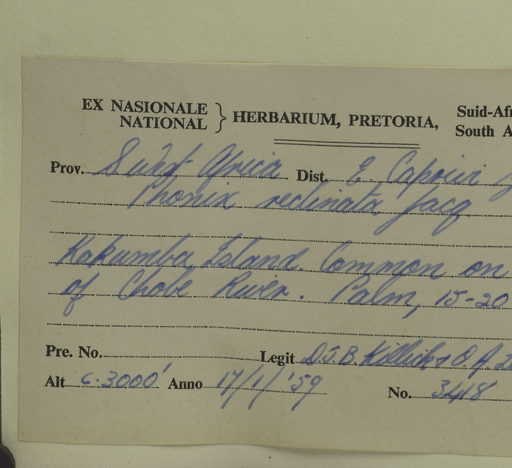 EX NASIONALE
NATIONAL } HERBARIUM, PRETORIA, Suid-Afr
South A
Prov. S West Africa Dist. E Caprivi
Phoenix reclinata Jacq
Kakumba Island. Common on
of Chobe River. Palm, 15-20
Pre. No. Legit D.J.B. Killick & O.A.
Alt c. 3000' Anno 17/1/'59 No.